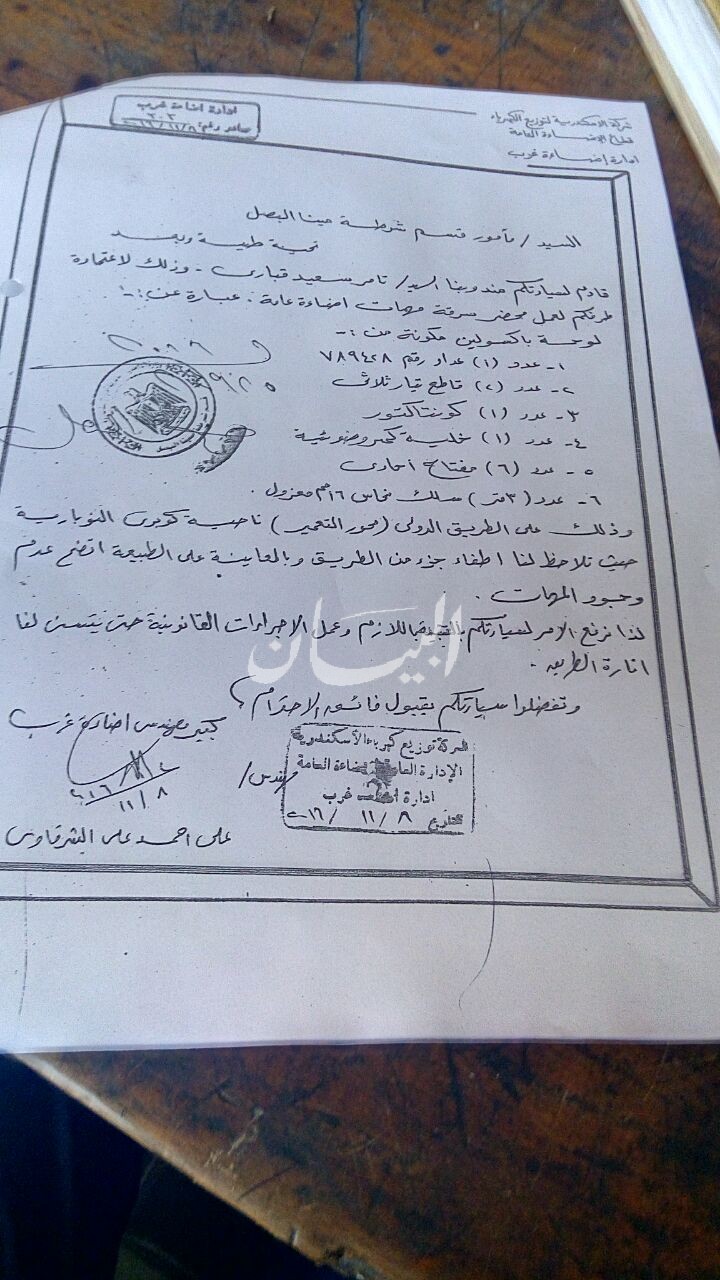 شركة الاسكندرية لتوزيع الكهرباء
قطاع الإضاءة العامة
ادارة إضاءة غرب
ادارة اضاءة غرب
صادر رقم: ٣٠٣
٢٠١٦/١١/٨
السيد / مأمور قسم شرطة مينا البصل
تحية طيبة وبعد
قادم لسيادتكم مندوبنا السيد / تامر سعيد قبارى - وذلك لاعتماده
طرفكم لعمل محضر سرقة مهمات اضاءة عامة . عبارة عن :-
لوحة باكسولين مكونة من :-
١- عدد (١) عداد رقم ٧٨٩٤٢٨
٢- عدد (٢) قاطع تيار ثلاثى
٣- عدد (١) كونتاكتور
٤- عدد (١) خلية كهروضوئية
٥- عدد (٦) مفتاح أحادى
٦- عدد (٣ متر) سلك نحاس ١٦ مم معزول .
وذلك على الطريق الدولى (محور التعمير) ناحية كوبرى النوبارية
حيث تلاحظ لنا اطفاء جزء من الطريق وبالمعاينة على الطبيعة اتضح عدم
وجود المهمات .
لذا نرفع الامر لسيادتكم باللازم وعمل الاجراءات القانونية حتى يتسنى لنا
انارة الطريق .
وتفضلوا سيادتكم بقبول فائق الاحترام
كبير مهندس اضاءة غرب
مهندس /
٢٠١٦/١١/٨
على احمد على الشرقاوى
شركة توزيع كهرباء الأسكندرية
الإدارة العامة للإضاءة العامة
ادارة اضاءة غرب
تحريرا ٨ / ١١ / ٢٠١٦
البيان